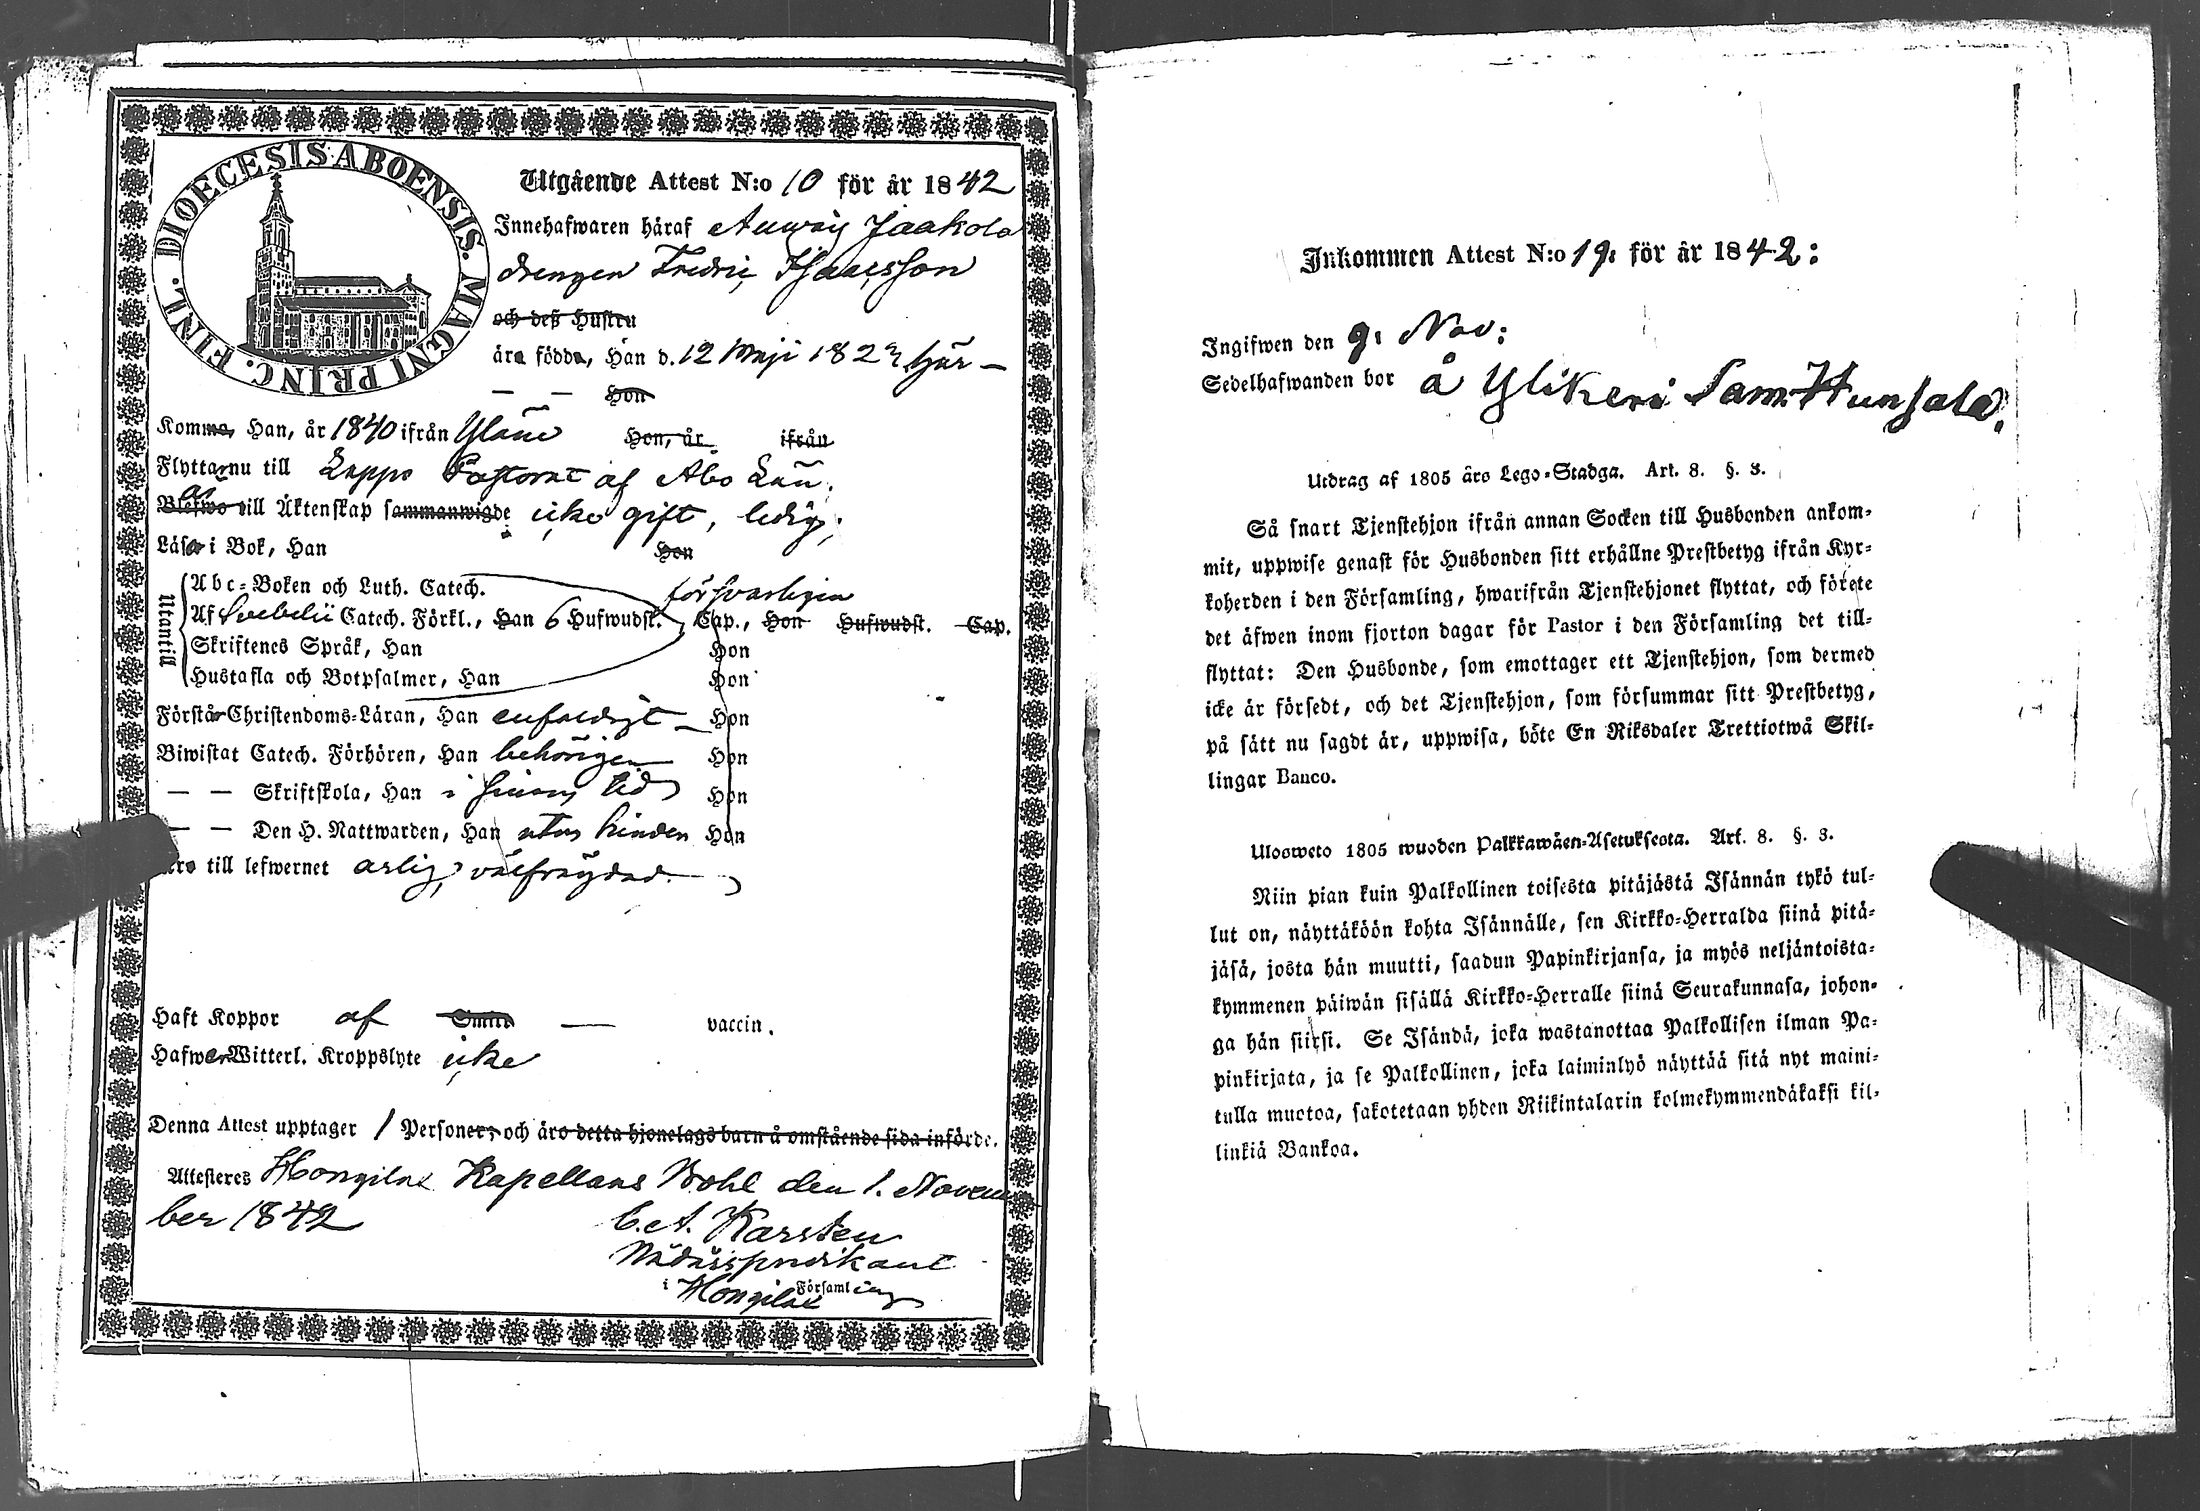 FINL. DIOECESIS ABOENSIS. MAGNI PRINC.
Utgående Attest N:o 10 för år 1842
Innehafwaren häraf Auwais Jaakola
drengen Fredric Isaacsson
och deß Hustru
äro födda, Han d. 12 Maji 1822 här —
— — Hon
Komme, Han, år 1840 ifrån Yläne Hon, år ifrån
Flyttar nu till Lappo Pastorat af Abo Län.
till Äktenskap sammanwigde icke gift, ledig;
Läser i Bok, Han Hon
Utantill
Abc-Boken och Luth. Catech. försvarligen
Af Svebelii Catech. Förkl., Han 6 Hufwudst. Cap., Hon Hufwudst. Cap.
Skriftenes Språk, Han Hon
Hustafla och Botpsalmer, Han Hon
Förstår Christendoms-Läran, Han enfaldigt — Hon
Biwistat Catech. Förhören, Han behörigen Hon
— — Skriftskola, Han i sinom tid Hon
— — Den H. Nattwarden, Han utan hinder Hon
till lefwernet ärlig, välfrägdad.
Haft Koppor af Smitt — vaccin.
Hafwer Witterl. Kroppslyte icke
Denna Attest upptager 1 Personer, och äro detta hjonelags barn å omstående sida införde.
Attesteres Honkilax Kapellans Bohl den 1. Novem
ber 1842
C. A. Karsten
Nådårspredikant
i Honkilax Församling
Inkommen Attest N:o 19: för år 1842:
Ingifwen den 9. Nov:
Sedelhafwanden bor å Ylikeri Sam: Hunsala.
Utdrag af 1805 års Lego-Stadga. Art. 8. §. 3.
Så snart Tjenstehjon ifrån annan Socken till Husbonden ankom-
mit, uppwise genast för Husbonden sitt erhållne Prestbetyg ifrån Kyr-
koherden i den Församling, hwarifrån Tjenstehjonet flyttat, och förete
det äfwen inom fjorton dagar för Pastor i den Församling det till-
flyttat: Den Husbonde, som emottager ett Tjenstehjon, som dermed
icke är försedt, och det Tjenstehjon, som försummar sitt Prestbetyg,
på sätt nu sagdt är, uppwisa, böte En Riksdaler Trettiotwå Skil-
lingar Banco.
Ulosweto 1805 wuoden Palkkawäen-Asetuksesta. Art. 8. §. 3.
Niin pian kuin Palkollinen toisesta pitäjästä Isännän tykö tul-
lut on, näyttäköön kohta Isännälle, sen Kirkko-Herralda siinä pitä-
jäsä, josta hän muutti, saadun Papinkirjansa, ja myös neljäntoista-
kymmenen päiwän sisällä Kirkko-Herralle siinä Seurakunnasa, johon-
ga hän siirsi. Se Isändä, joka wastanottaa Palkollisen ilman Pa-
pinkirjata, ja se Palkollinen, joka laiminlyö näyttää sitä nyt maini-
tulla muotoa, sakotetaan yhden Riikintalarin kolmekymmendäkaksi kil-
linkiä Bankoa.